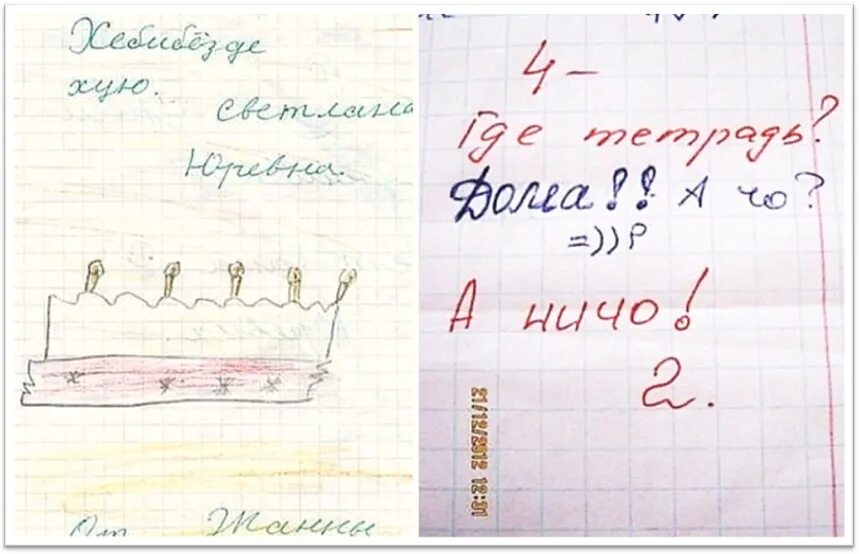 Хебибёзде
хую.
светлана
Юревна.
От Жанны
4-
Где тетрадь?
Дома!! А чо?
=))P
А ничо!
2.
21/12/2012 12:31